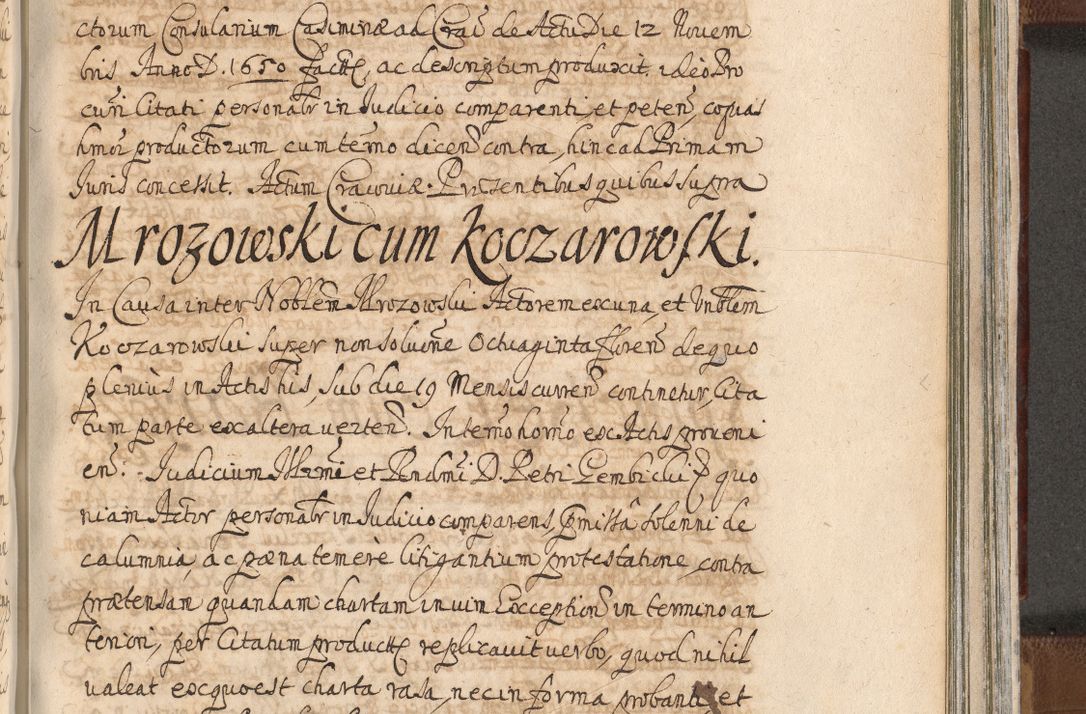 ctorum Consularium Casimiriæ ad Crac de Actu Die 12 Novem
bris Anno D. 1650 fact, ac descriptum produxit. ideo Pro
curi Citati personalr in Judicio comparenti, et peten, copias
hmoi productorum cum termo dicen contra, hinc ad Primam
Juris concessit. Actum Cracoviæ. Præsentibus quibus supra
Mrozowski cum Koczarowski.
In Causa inter Noblem Mrozowski Actorem ex una, et Unblem
Koczarowski super non solutne Octuaginta floren de quo
plenius in Actis his, sub die 19 Mensis curren continetur, Cita
tum parte ex altera verten. In termo horno ex Actis proveni
en. Judicium Illmi et Rndmi D. Petri Gembicki quo
niam Actor personalr in Judicio comparens, præmissa solenni de
calumnia, ac pæna temerè litigantium protestatione, contra
prætensam quandam chartam in vim Exception in termino an
teriori, per Citatum product replicavit verbo, quod nihil
valeat ex quo est charta rasa, nec in forma probanti, et